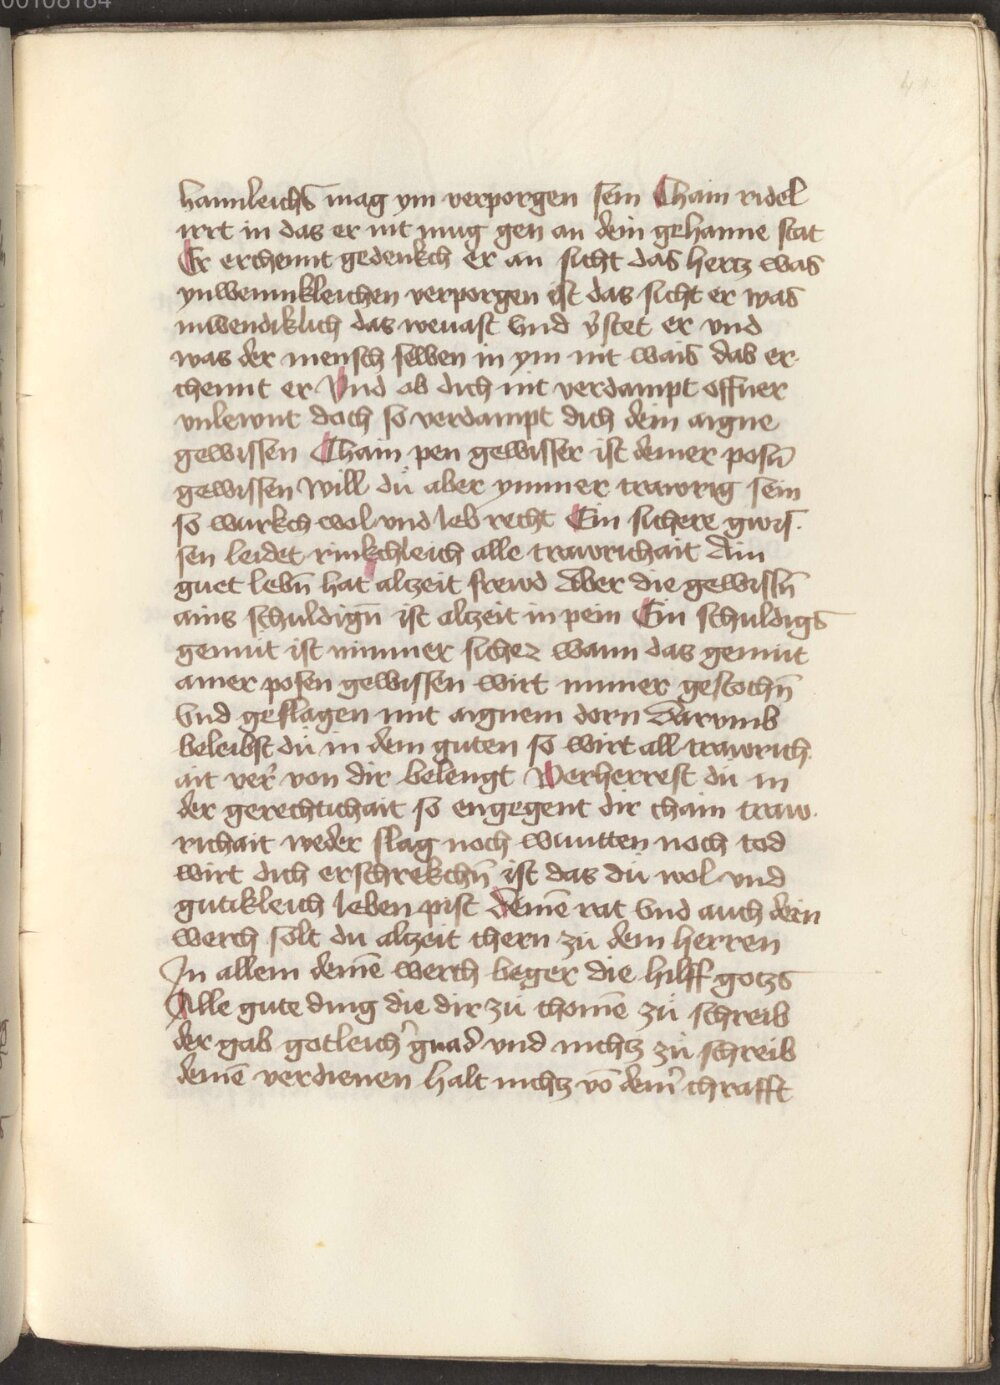 00108184
hannleichs mag ym verporgen sein Chain ridel
irrt in das er nit mug gen an dein gehanne stat
Er erchennt gedenkch er an sicht das hertz was
ynwenniklichen verporgen ist das sicht er was
inwendiklich das wevast vnd v̉stet er vnd
was der mensch selben in ym nit wais das er
chennt er Vnd ob dich nit verdampt offner
vnlewnt doch so verdampt dich dein aigne
gewissen Chain pen gewisser ist deiner posn̄
gewissen Will dü aber ymmer trawrig sein
so würkch wol vnd leb recht Ein sichere gwis
sen leidet rinkchleich alle trawrichait Ain
guet lebn̄ hat altzeit frewd Aber die gewissn̄
ains schuldign̄ ist altzeit in pein Ein schuldigs
gemüt ist nimmer sicher wann das gemüt
ainer posen gewissen wirt nimer gestochn̄
Vnd geslagen mit aignem dorn Darvmb
beleibst dü in dem guten so wirt all trawrich
ait ver̉ von dir belengt Verherrest dü in
der gerechtichait so engegent dir chain traw
richait weder slag noch wuntten noch tod
wirt dich erschrekchn̄ ist das dü wol vnd
gütikleich leben pist deinē rat Vnd auch dein
werch solt du altzeit chern zü dem herren
In allem deinē werch beger die hilff gotzs
Alle gute ding die dir zü chomē zü schreib
der gab gotleich̉ gnad vnd nichtz zü schreib
deinē verdienen halt nichtz vō dein̉ chrafft